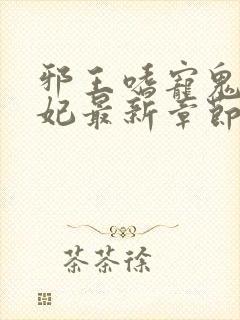 邪王嗜寵鬼
妃最新章節
茶茶徐